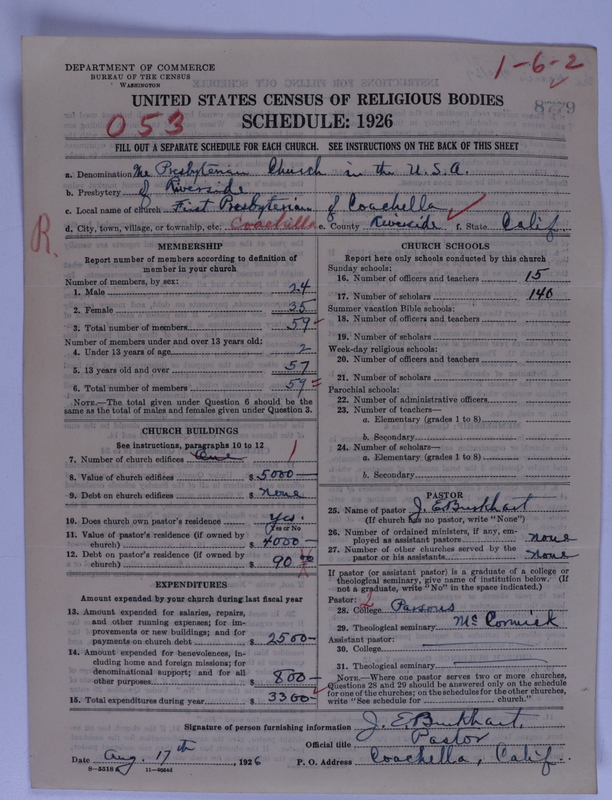 DEPARTMENT OF COMMERCE
BUREAU OF THE CENSUS
WASHINGTON
1-6-2
UNITED STATES CENSUS OF RELIGIOUS BODIES
8779
053
SCHEDULE: 1926
FILL OUT A SEPARATE SCHEDULE FOR EACH CHURCH. SEE INSTRUCTIONS ON THE BACK OF THIS SHEET
a. Denomination The Presbyterian Church in the U.S.A.
b. Presbytery of Riverside
c. Local name of church First Presbyterian of Coachella
d. City, town, village, or township, etc. Coachella e. County Riverside f. State Calif.
R.
MEMBERSHIP
Report number of members according to definition of
member in your church
Number of members, by sex:
1. Male 24
2. Female 35
3. Total number of members 59
Number of members under and over 13 years old:
4. Under 13 years of age 2
5. 13 years old and over 57
6. Total number of members 59
NOTE.—The total given under Question 6 should be
the same as the total of males and females given under Question 3.
CHURCH BUILDINGS
See instructions, paragraphs 10 to 12
7. Number of church edifices One 1
8. Value of church edifices $ 5000
9. Debt on church edifices $ None
10. Does church own pastor's residence Yes.
Yes or No
11. Value of pastor's residence (if owned by
church) $ 4000
12. Debt on pastor's residence (if owned by
church) $ 90 00
EXPENDITURES
Amount expended by your church during last fiscal year
13. Amount expended for salaries, repairs,
and other running expenses; for im-
provements or new buildings; and for
payments on church debt $ 2500
14. Amount expended for benevolences, in-
cluding home and foreign missions; for
denominational support; and for all
other purposes $ 800
15. Total expenditures during year $ 3300
CHURCH SCHOOLS
Report here only schools conducted by this church
Sunday schools:
16. Number of officers and teachers 15
17. Number of scholars 140
Summer vacation Bible schools:
18. Number of officers and teachers
19. Number of scholars
Week-day religious schools:
20. Number of officers and teachers
21. Number of scholars
Parochial schools:
22. Number of administrative officers
23. Number of teachers—
a. Elementary (grades 1 to 8)
b. Secondary
24. Number of scholars—
a. Elementary (grades 1 to 8)
b. Secondary
PASTOR
25. Name of pastor J. E. Burkhart
(If church has no pastor, write "None")
26. Number of ordained ministers, if any, em-
ployed as assistant pastors none
27. Number of other churches served by the
pastor or his assistants None
If pastor (or assistant pastor) is a graduate of a college or
theological seminary, give name of institution below. (If
not a graduate, write "No" in the space indicated.)
Pastor: 2
28. College Parsons
29. Theological seminary McCormick
Assistant pastor:
30. College
31. Theological seminary
NOTE.—Where one pastor serves two or more churches,
Questions 28 and 29 should be answered only on the schedule
for one of the churches; on the schedules for the other churches,
write "See schedule for church."
Signature of person furnishing information J. E. Burkhart
Official title Pastor
Date Aug. 17th, 1926 P. O. Address Coachella, Calif.